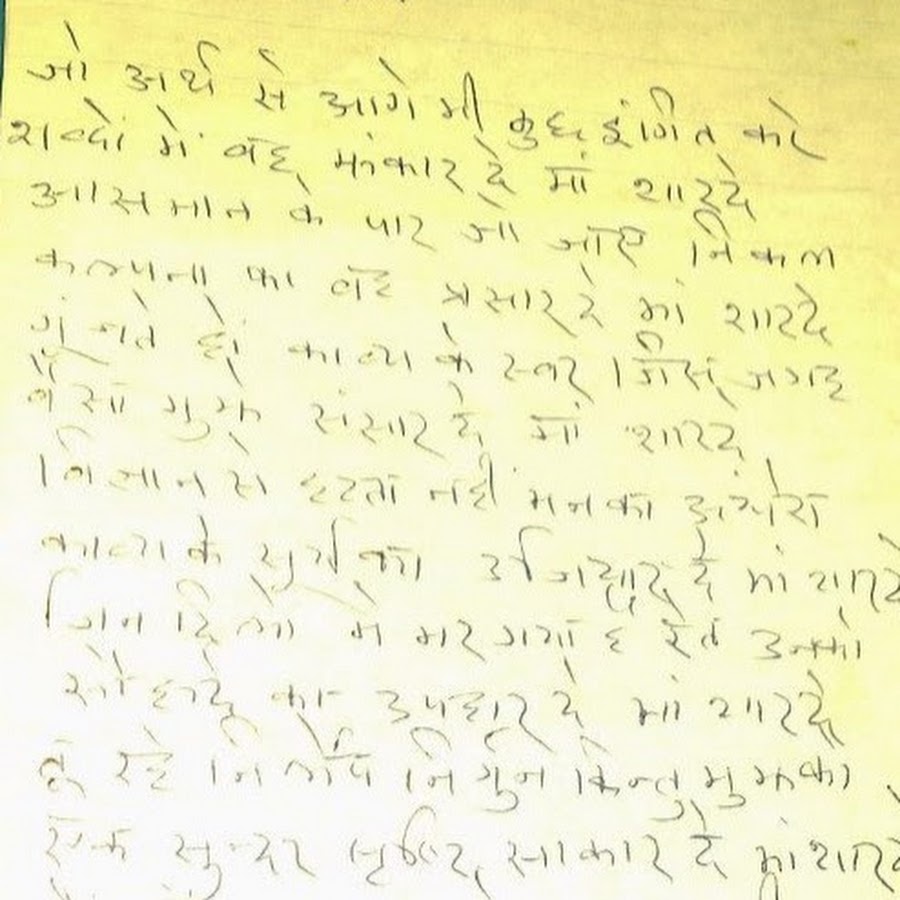 जो अर्थ से आगे भी कुछ इंगित करे
शब्दों में वह झंकार दे माँ शारदे
आसमान के पार जो जाए निकल
कल्पना का वह प्रसार दे मां शारदे
गूंजते हों काव्य के स्वर जिस जगह
वैसा मुझे संसार दे माँ शारदे
विज्ञान से हटता नहीं मन का अंधेरा
काव्य के सूर्य का उजियार दे मां शारदे
जिन दिलों में भर गया है द्वेत उनको
सौहार्द्र का उपहार दे मां शारदे
तू रहे निर्लेप निर्गुन किन्तु मुझको
एक सुन्दर साकार दे मां शारदे